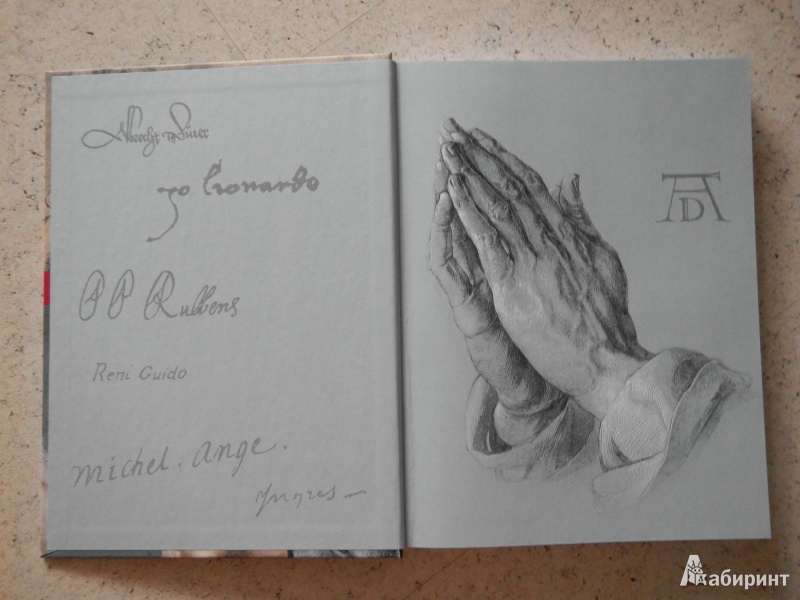 Albrecht Dürer
Jo Lionardo
P P Rubbens
Reni Guido
Michel. Ange.
Yngres —
AD
Лабиринт